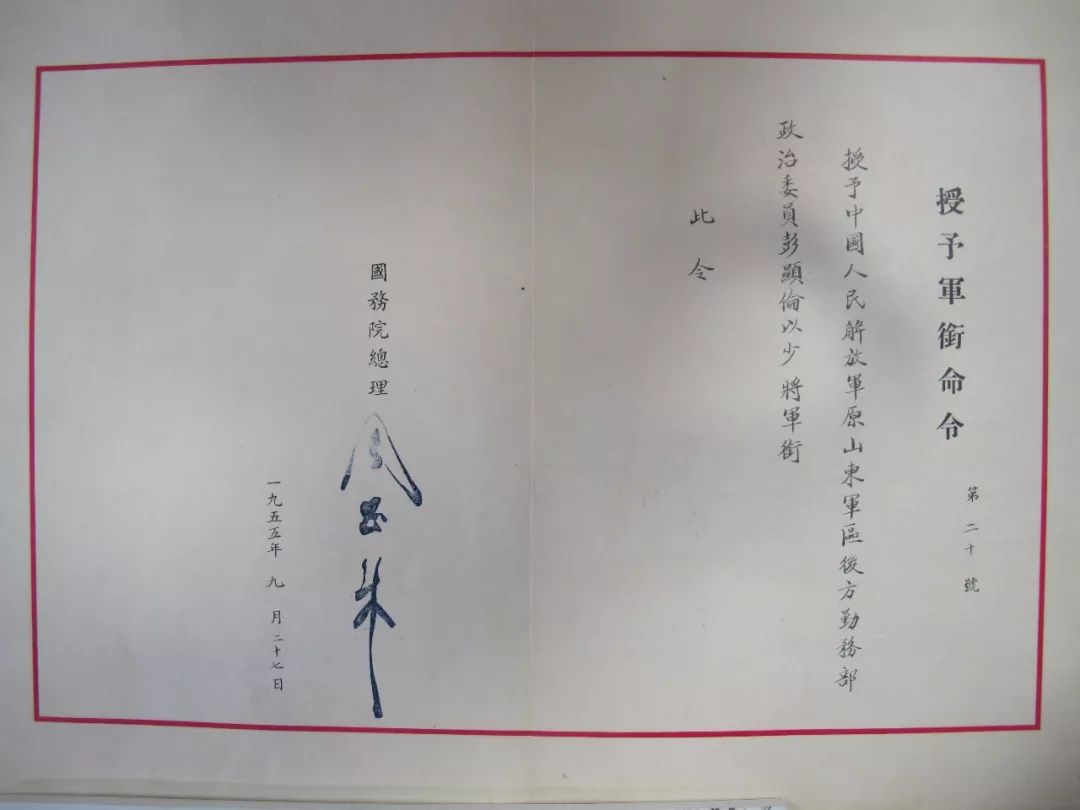 授予軍銜命令
第二十號
授予中國人民解放軍原山東軍區後方勤務部
政治委員彭顯倫以少將軍銜
此令
國務院總理
周恩來
一九五五年九月二十七日